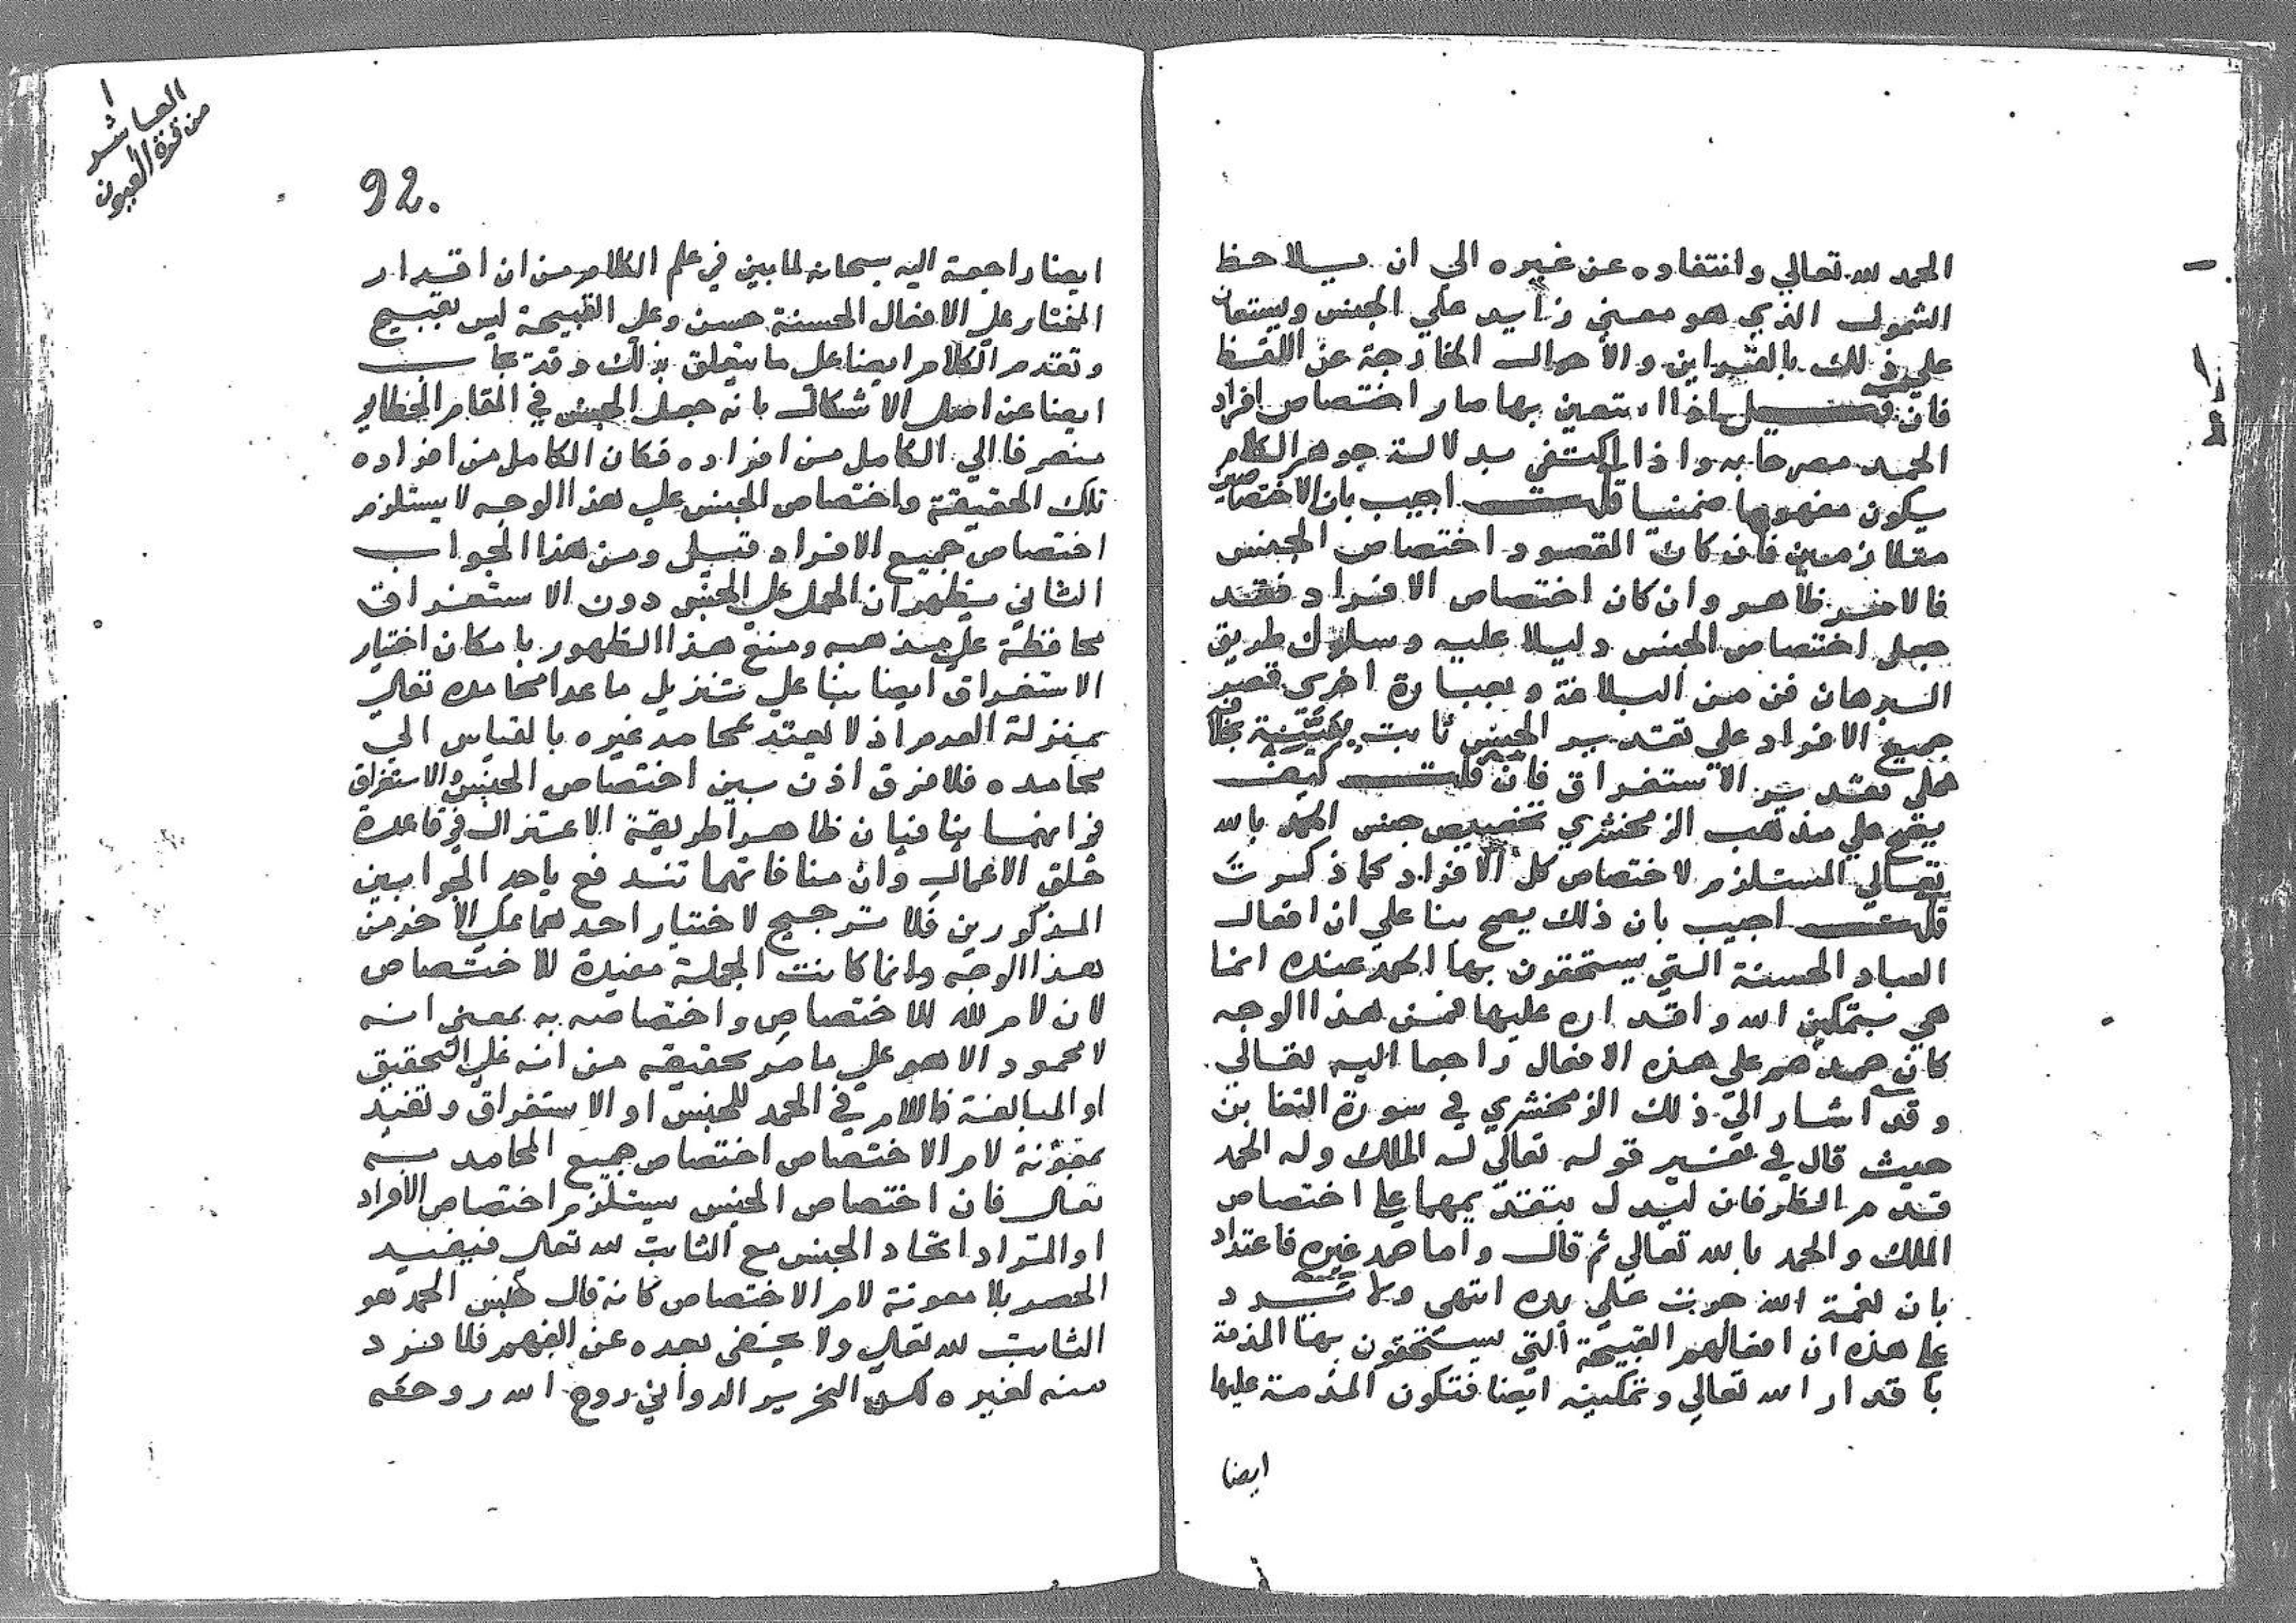 الحمد لله تعالي وانتفاوه عن غيره الي ان يلاحظ
الشمول الذي هو معني زايد علي الجنس ويستعان
علي ذلك بالقراين والاحوال الخارجة عن اللفظ
فان قيل اذا تعين بها صار اختصاص افراد
الحمد مصرحا به واذا اكتفي بدلالة جوهر الكلام
يكون مفهومها ضمنيا قلت اجيب بان الاختصاصين
متلازمين فان كان المقصود اختصاص الجنس
فالامر ظاهر وان كان اختصاص الافراد فقد
جعل اختصاص الجنس دليلا عليه وسلوك طريق
البرهان فن من البلاغة وبعبارة اخري قصر
جميع الافراد علي تقدير الجنس ثابت ببينة بخلافه
علي تقدير الاستغراق فان قلت كيف
يصح علي مذهب الزمخشري تخصيص جنس الحمد بالله
تعالي المستلزم لاختصاص كل الافراد كما ذكرت
قلت اجيب بان ذلك يصح بنا علي ان افعال
العباد الحسنة التي يستحقون بها الحمد عنده انما
هي بتمكين الله واقداره عليها فمن هذا الوجه
كان حمدهم علي هذه الافعال راجعا اليه تعالي
وقد اشار الي ذلك الزمخشري في سورة التغابن
حيث قال في تفسير قوله تعالي له الملك وله الحمد
قدم الظرفان ليدل بتقديمهما علي اختصاص
الملك والحمد بالله تعالي ثم قال واما حمد غيره فاعتداد
بان نعمة الله جرت علي يده انتهي ولا يرد
علي هذه ان افعالهم القبيحة التي يستحقون بها المذمة
باقدار الله تعالي وتمكينه ايضا فتكون المذمة عليها
ايضا
العاشر
من قرة العيون
92.
ايضا راجعة اليه سبحانه لما بين في علم الكلام من ان اقدار
المختار علي الافعال الحسنة حسن وعلي القبيحة ليس بقبيح
وتقدم الكلام ايضا علي ما يتعلق بذلك وقد يجاب
ايضا عن اصل الاشكال بانه جعل الجنس في المقام الخطابي
منصرفا الي الكامل من افراده فكان الكامل من افراده
تلك الحقيقة واختصاص الجنس علي هذا الوجه لا يستلزم
اختصاص جميع الافراد قيل ومن هذا الجواب
الثاني يظهر ان الحمل علي الجنس دون الاستغراق
محافظة علي مذهبه ومنع هذا الظهور بامكان اختيار
الاستغراق ايضا بنا علي تنزيل ماعدا محامده تعالي
بمنزلة العدم اذ لا يعتد بمحامد غيره بالقياس الي
محامده فلا فرق اذن بين اختصاص الجنس والاستغراق
في انهما ينافيان ظاهرا طريقة الاعتزال في قاعدة
خلق الاعمال وان منافاتهما تندفع باحد الجوابين
المذكورين فلا ترجيح لاختيار احدهما علي الاخر من
هذا الوجه وانما كانت الجملة مفيدة للاختصاص
لان لام لله للاختصاص واختصاصه به بمعني انه
لا محمود الا هو علي ما مر تحقيقه من انه علي التحقيق
او المبالغة فاللام في الحمد للجنس او الاستغراق وتفيد
بمعونة لام الاختصاص اختصاص جميع المحامد به
تعالي فان اختصاص الجنس يستلزم اختصاص الافراد
او المراد اتحاد الجنس مع الثابت لله تعالي فيفيد
الحصر بلا معونة لام الاختصاص كانه قال جنس الحمد هو
الثابت لله تعالي ولا يخفي بعده عن الفهم فلا فرد
منه لغيره لكن النحرير الدواني روح الله روحه